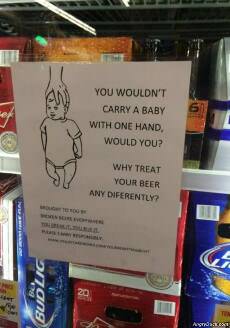 YOU WOULDN'T
CARRY A BABY
WITH ONE HAND,
WOULD YOU?
WHY TREAT
YOUR BEER
ANY DIFERENTLY?
BROUGHT TO YOU BY
BROKEN BEERS EVERYWHERE
YOU BREAK IT, YOU BUY IT.
PLEASE CARRY RESPONSIBLY.
BUD
LIGHT
20
AngryDuck.com